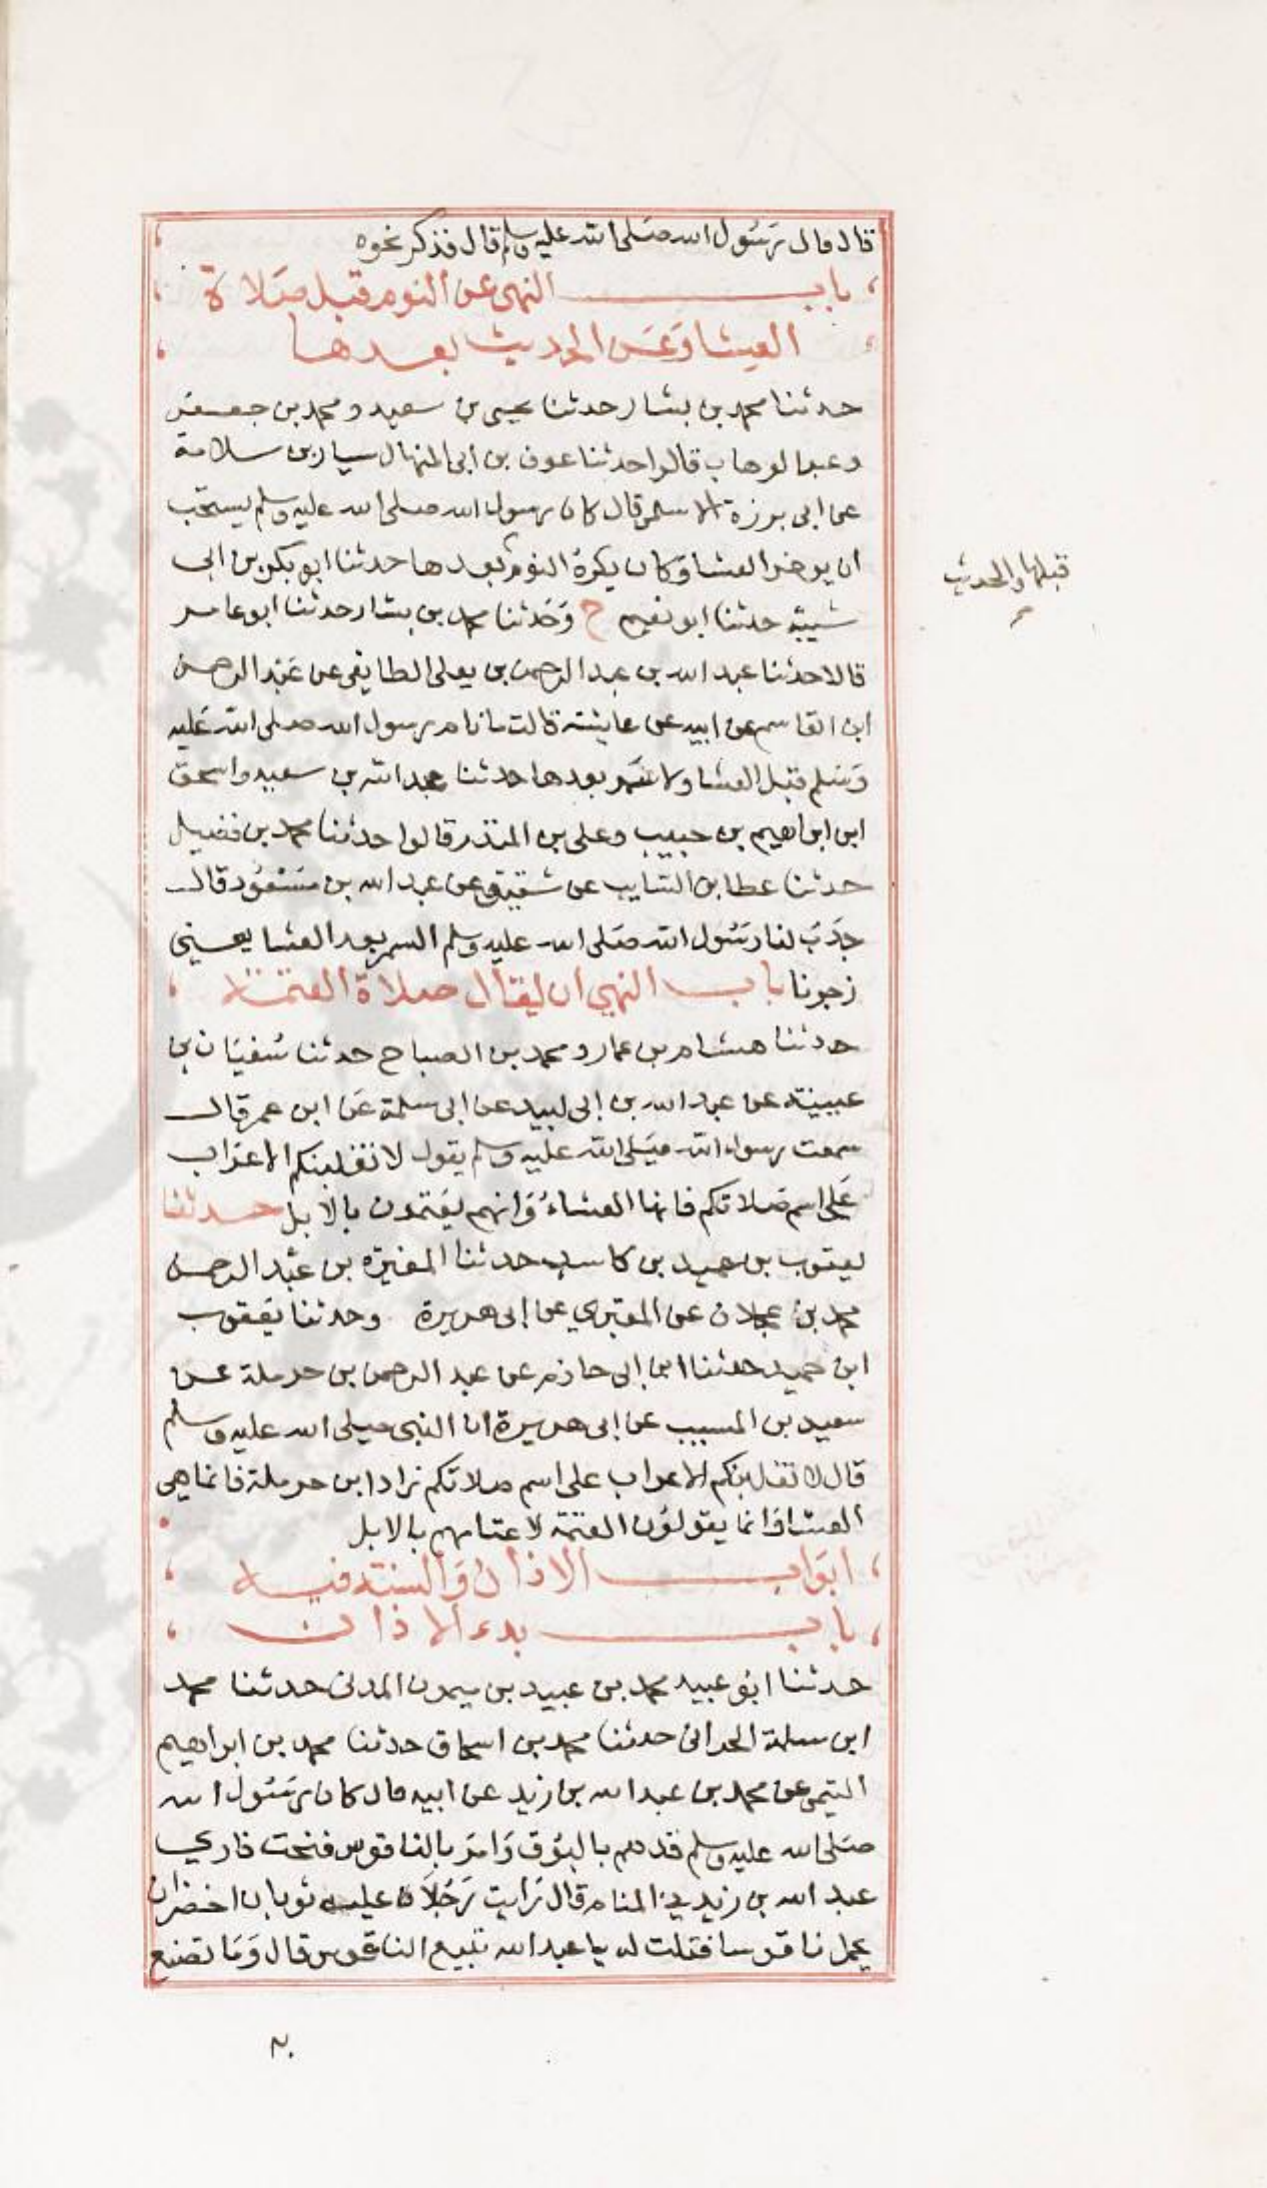 قال قال رسول الله صلى الله عليه وسلم قال فذكر نحوه
باب النهي عن النوم قبل صلاة
العشا وعن الحديث بعدها
حدثنا محمد بن بشار حدثنا يحيى بن سعيد ومحمد بن جعفر
وعبد الوهاب قالوا حدثنا عوف بن ابي المنهال سيار بن سلامة
عن ابي برزة الاسلمي قال كان رسول الله صلى الله عليه وسلم يستحب
ان يوخر العشا وكان يكره النوم بعدها حدثنا ابو بكر بن ابي
قبلها والحديث
شيبة حدثنا ابو نعيم ح وحدثنا محمد بن بشار حدثنا ابو عامر
قالا حدثنا عبد الله بن عبد الرحمن بن يعلى الطايفي عن عبد الرحمن
ابن القاسم عن ابيه عن عايشة قالت ما نام رسول الله صلى الله عليه
وسلم قبل العشا ولا سمر بعدها حدثنا عبد الله بن سعيد واسحق
ابن ابراهيم بن حبيب وعلي بن المنذر قالوا حدثنا محمد بن فضيل
حدثنا عطا بن السايب عن شقيق عن عبد الله بن مسعود قال
جدب لنا رسول الله صلى الله عليه وسلم السمر بعد العشا يعني
زجرنا باب النهي ان يقال صلاة العتمة
حدثنا هشام بن عمار ومحمد بن الصباح حدثنا سفيان بن
عيينة عن عبد الله بن ابي لبيد عن ابي سلمة عن ابن عمر قال
سمعت رسول الله صلى الله عليه وسلم يقول لا تغلبنكم الاعراب
على اسم صلاتكم فانها العشاء وانهم يعتمون بالابل حدثنا
يعقوب بن حميد بن كاسب حدثنا المغيرة بن عبد الرحمن
محمد بن عجلان عن المقبري عن ابي هريرة وحدثنا يعقوب
ابن حميد حدثنا ابن ابي حازم عن عبد الرحمن بن حرملة عن
سعيد بن المسيب عن ابي هريرة ان النبي صلى الله عليه وسلم
قال لا تغلبنكم الاعراب على اسم صلاتكم زاد ابن حرملة فانما هي
العشا وانما يقولون العتمة لاعتامهم بالابل
ابواب الاذان والسنة فيه
باب بدء الاذان
حدثنا ابو عبيد محمد بن عبيد بن ميمون المدني حدثنا محمد
ابن سلمة الحراني حدثنا محمد بن اسحاق حدثنا محمد بن ابراهيم
التيمي عن محمد بن عبد الله بن زيد عن ابيه قال كان رسول الله
صلى الله عليه وسلم قد هم بالبوق وامر بالناقوس فنحت فاري
عبد الله بن زيد في المنام قال رايت رجلا عليه ثوبان اخضران
يحمل ناقوسا فقلت له يا عبد الله تبيع الناقوس قال وما تصنع